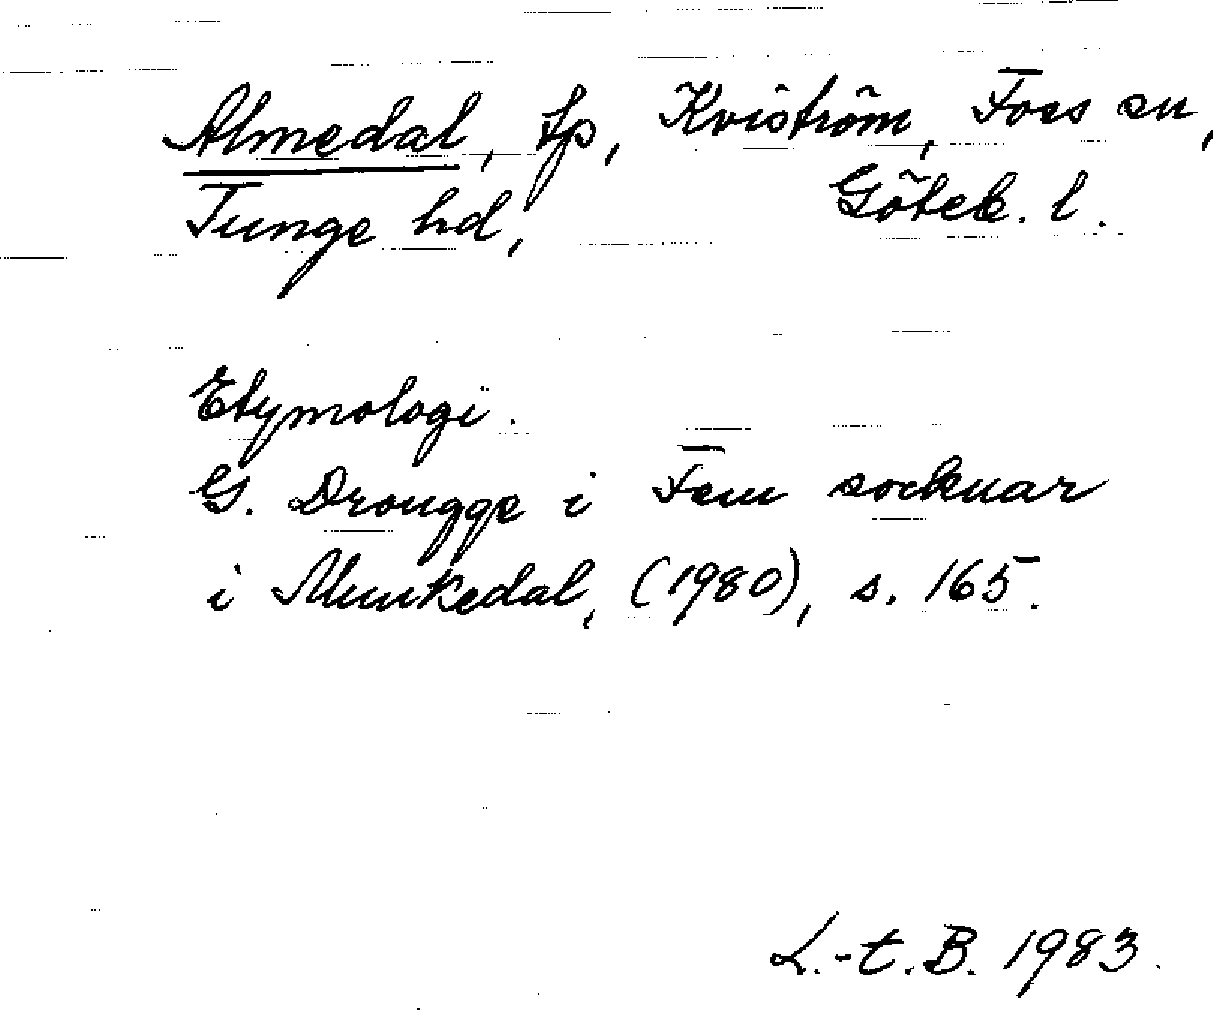 Almedal, lp, Kviström, Foss sn,
Tunge hd, Göteb. l.
Etymologi.
G. Drougge i Fem socknar
i Munkedal, (1980), s. 165.
L.-t. B. 1983.